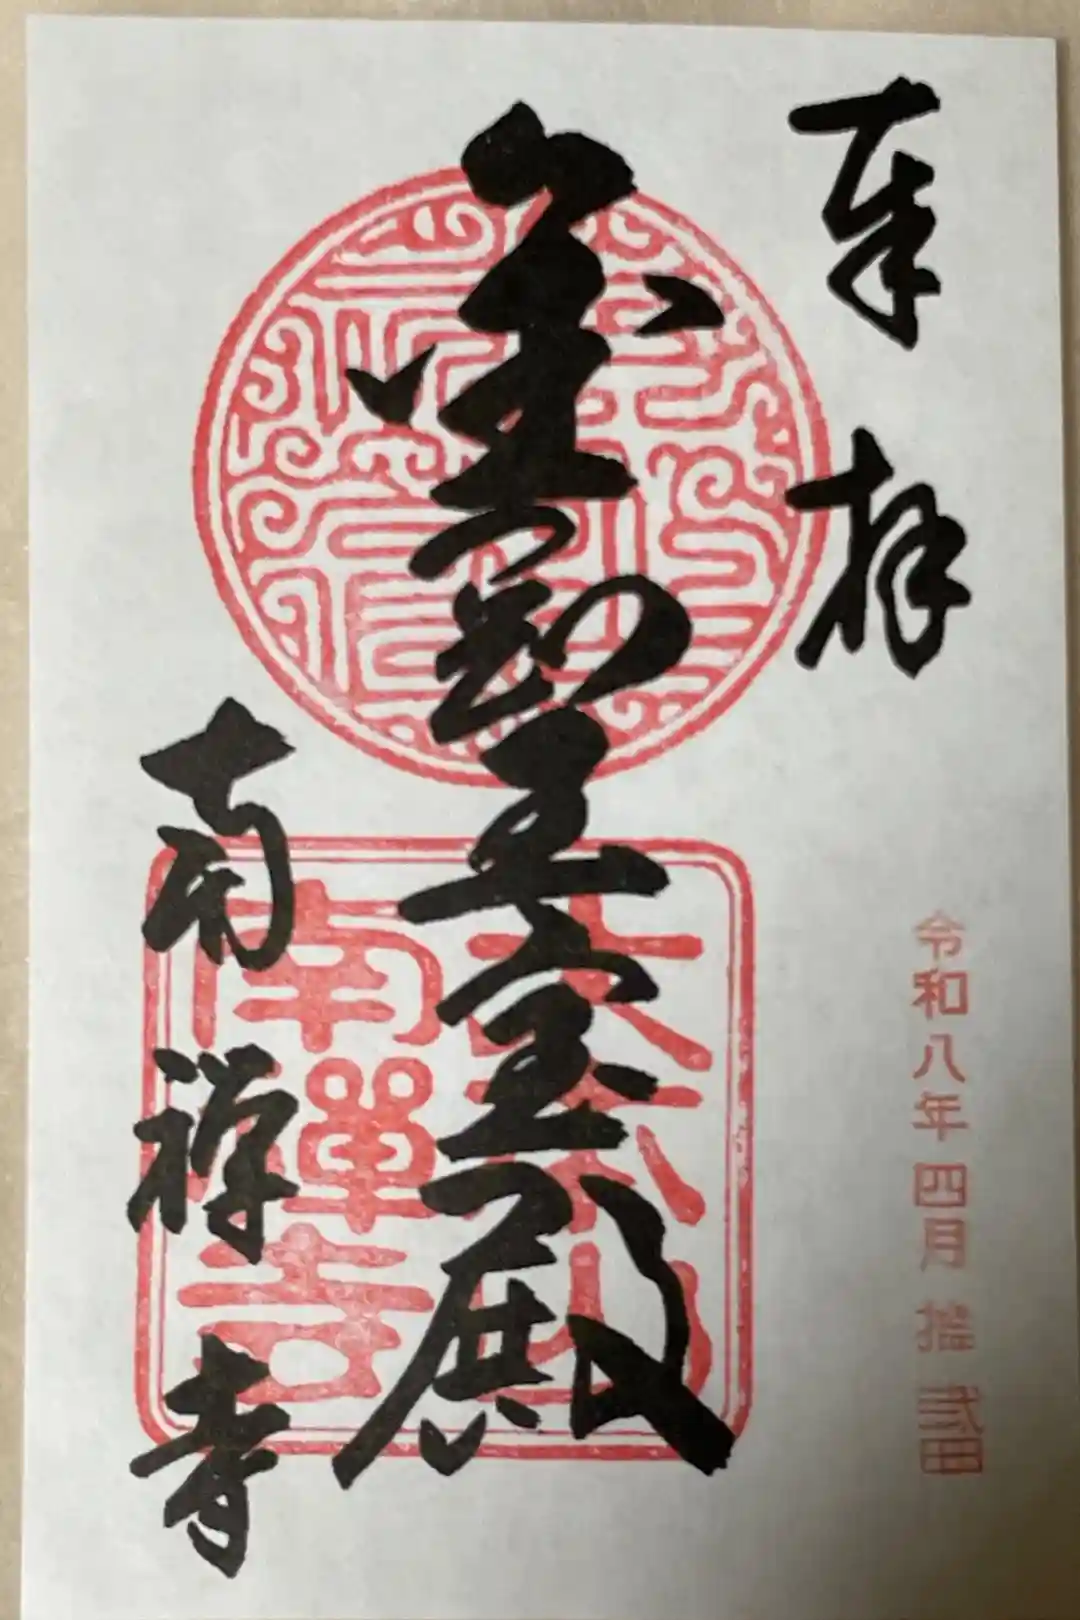 奉拝
令和八年四月拾弐日
金剛王宝殿
大本山
南禪寺
南禅寺